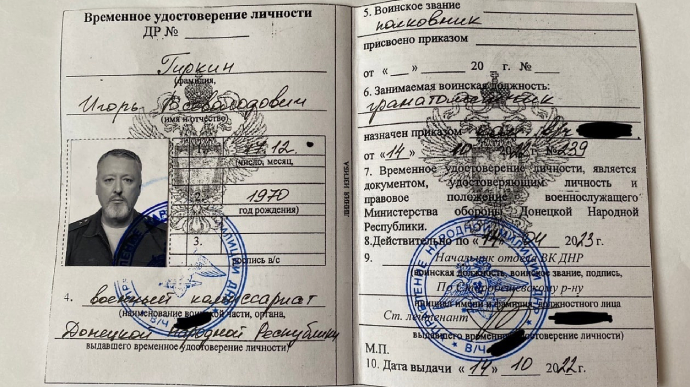 Временное удостоверение личности
ДР №
Гиркин
(фамилия,
Игорь Всеволодович
(имя и отчество)
1. 17.12.
(число, месяц,
2. 1970
год рождения)
3.
подпись в/с
4. военный комиссариат
(наименование воинской части, органа,
Донецкой Народной Республики
выдавшего временное удостоверение личности)
ЛИНИЯ ИЗГИБА
5. Воинское звание
полковник
присвоено приказом
от « » 20 г. №
6. Занимаемая воинская должность:
гранатометчик
назначен приказом
от «14» 10 2022 № 239
7. Временное удостоверение личности, является
документом, удостоверяющим личность и
правовое положение военнослужащего
Министерства обороны Донецкой Народной
Республики.
8. Действительно по «14» 04 2023 г.
9. Начальник отдела ВК ДНР
воинская должность, воинское звание, подпись,
По Старобешевскому р-ну
инициал имени и фамилия, должностного лица
Ст. лейтенант
выдавшего временное удостоверение личности)
М.П.
10. Дата выдачи «14» 10 2022 г.
НАРОДНОЙ МИЛИЦИИ
В/Ч